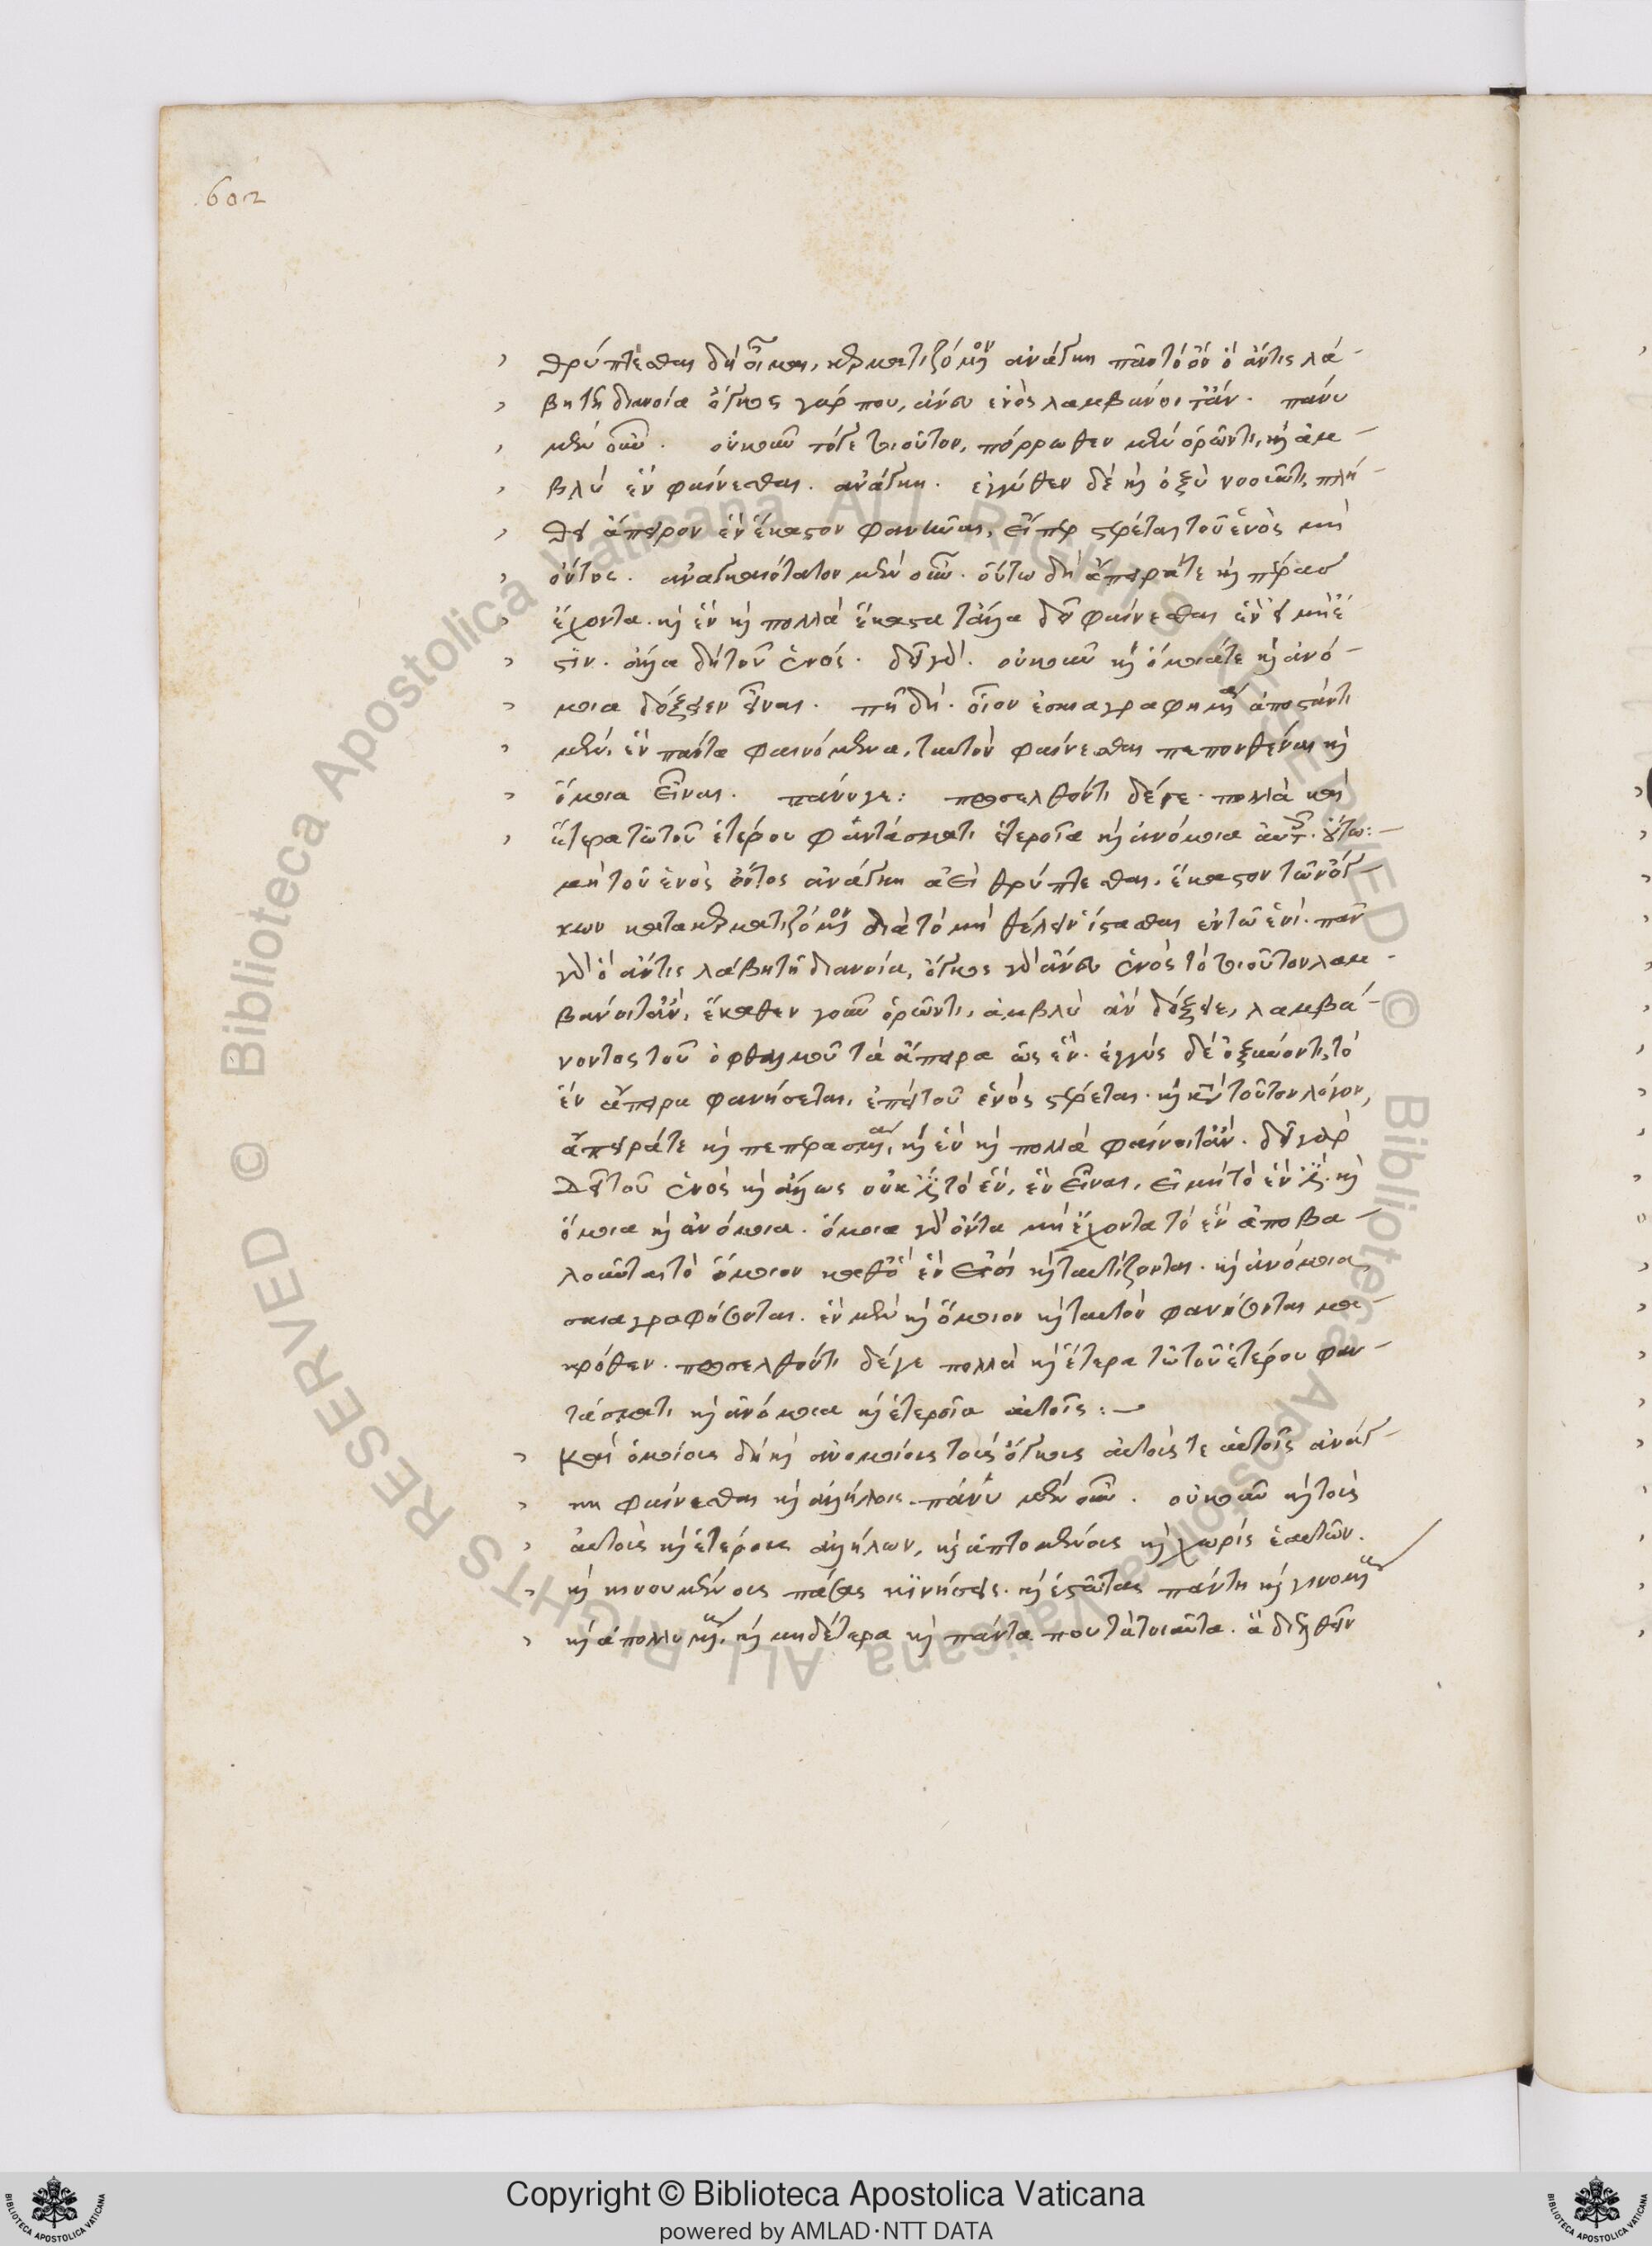 602
θρύπτεσθαι δὴ οἶμαι, κερματιζόμενον ἀνάγκη πᾶν τὸ ὂν ὃ ἄν τις λά-
βῃ τῇ διανοίᾳ ὄγκος γάρ που, ἄνευ ἑνὸς λαμβάνοιτ' ἄν. πάνυ
μὲν οὖν. οὐκοῦν τό γε τοιοῦτον, πόρρωθεν μὲν ὁρῶντι, καὶ ἀμ-
βλὺ ἓν φαίνεσθαι. ἀνάγκη. ἐγγύθεν δὲ καὶ ὀξὺ νοοῦντι, πλή-
θει ἄπειρον ἓν ἕκαστον φανῆναι, εἴπερ στέρεται τοῦ ἑνὸς μὴ
ὄντος. ἀναγκαιότατον μὲν οὖν. οὕτω δὴ ἄπειρά τε καὶ πέρας
ἔχοντα. καὶ ἓν καὶ πολλὰ ἕκαστα τἆλλα δεῖ φαίνεσθαι ἓν εἰ μή ἐ-
στιν. ἄλλα δὴ τοῦ ἑνός. δεῖ γάρ. οὐκοῦν καὶ ὅμοιά τε καὶ ἀνό-
μοια δόξειεν εἶναι. πῆ δή. οἷον ἐσκιαγραφημένα ἀποστάντι
μὲν, ἓν πάντα φαινόμενα, ταυτὸν φαίνεσθαι πεπονθέναι καὶ
ὅμοια εἶναι. πάνυγε: προσελθόντι δέ γε. πολλὰ καὶ
ἕτερα τῷ τοῦ ἑτέρου φαντάσματι ἑτεροῖα καὶ ἀνόμοια αὑτοῖς. οὕτω:-
μὴ τοῦ ἑνὸς ὄντος ἀνάγκη ἀεὶ θρύπτεσθαι, ἕκαστον τῶν ὄγ-
κων κατακερματιζόμενον διὰ τὸ μὴ θέλειν ἵστασθαι ἐν τῷ ἑνί. πᾶν
γὰρ ὃ ἄν τις λάβῃ τῇ διανοίᾳ, ὄγκος γὰρ ἄνευ ἑνὸς τὸ τοιοῦτον λαμ-
βάνοιτ' ἄν, ἕκαθεν γοῦν ὁρῶντι, ἀμβλὺ ἂν δόξειε, λαμβά-
νοντος τοῦ ὀφθαλμοῦ τὰ ἄπειρα ὡς ἕν. ἐγγὺς δὲ ὀξυόντι, τὸ
ἓν ἄπειρα φανήσεται, ἐπεὶ τοῦ ἑνὸς στέρεται. καὶ κατὰ τοῦτον λόγον,
ἄπειρά τε καὶ πεπερασμένα, καὶ ἓν καὶ πολλὰ φαίνοιτ' ἄν. δεῖ γὰρ
τοῦ ἑνὸς καὶ ἄλλως οὐκ ἔστι τὸ ἓν, ἓν εἶναι, εἰ μὴ τὸ ἓν ἔστι. καὶ
ὅμοια καὶ ἀνόμοια. ὅμοια γὰρ ὄντα μὴ ἔχοντα τὸ ἓν ἀποβα-
λοῦνται τὸ ὅμοιον καθὸ ἕν εἰσι καὶ ταυτίζονται. καὶ ἀνόμοια
σκιαγραφήσονται. ἓν μὲν καὶ ὅμοιον καὶ ταυτὸν φανήσονται μα-
κρόθεν. προσελθόντι δέ γε πολλὰ καὶ ἕτερα τῷ τοῦ ἑτέρου φαν-
τάσματι καὶ ἀνόμοια καὶ ἑτεροῖα αὐτοῖς:-
καὶ ὁμοίοις δὴ καὶ ἀνομοίοις τοὺς ὄγκους αὐτοῖς τε αὑτοῖς ἀνάγ-
κη φαίνεσθαι καὶ ἀλλήλοις. πάνυ μὲν οὖν. οὐκοῦν καὶ τοὺς
αὐτοὺς καὶ ἑτέρους ἀλλήλων, καὶ ἁπτομένους καὶ χωρὶς ἑαυτῶν.
καὶ κινουμένους πάσας κινήσεις. καὶ ἑστῶτας πάντη καὶ γινομένους
καὶ ἀπολλυμένους, καὶ μηδέτερα καὶ πάντα που τὰ τοιαῦτα. ἃ διεξελθεῖν
Copyright © Biblioteca Apostolica Vaticana
powered by AMLAD·NTT DATA